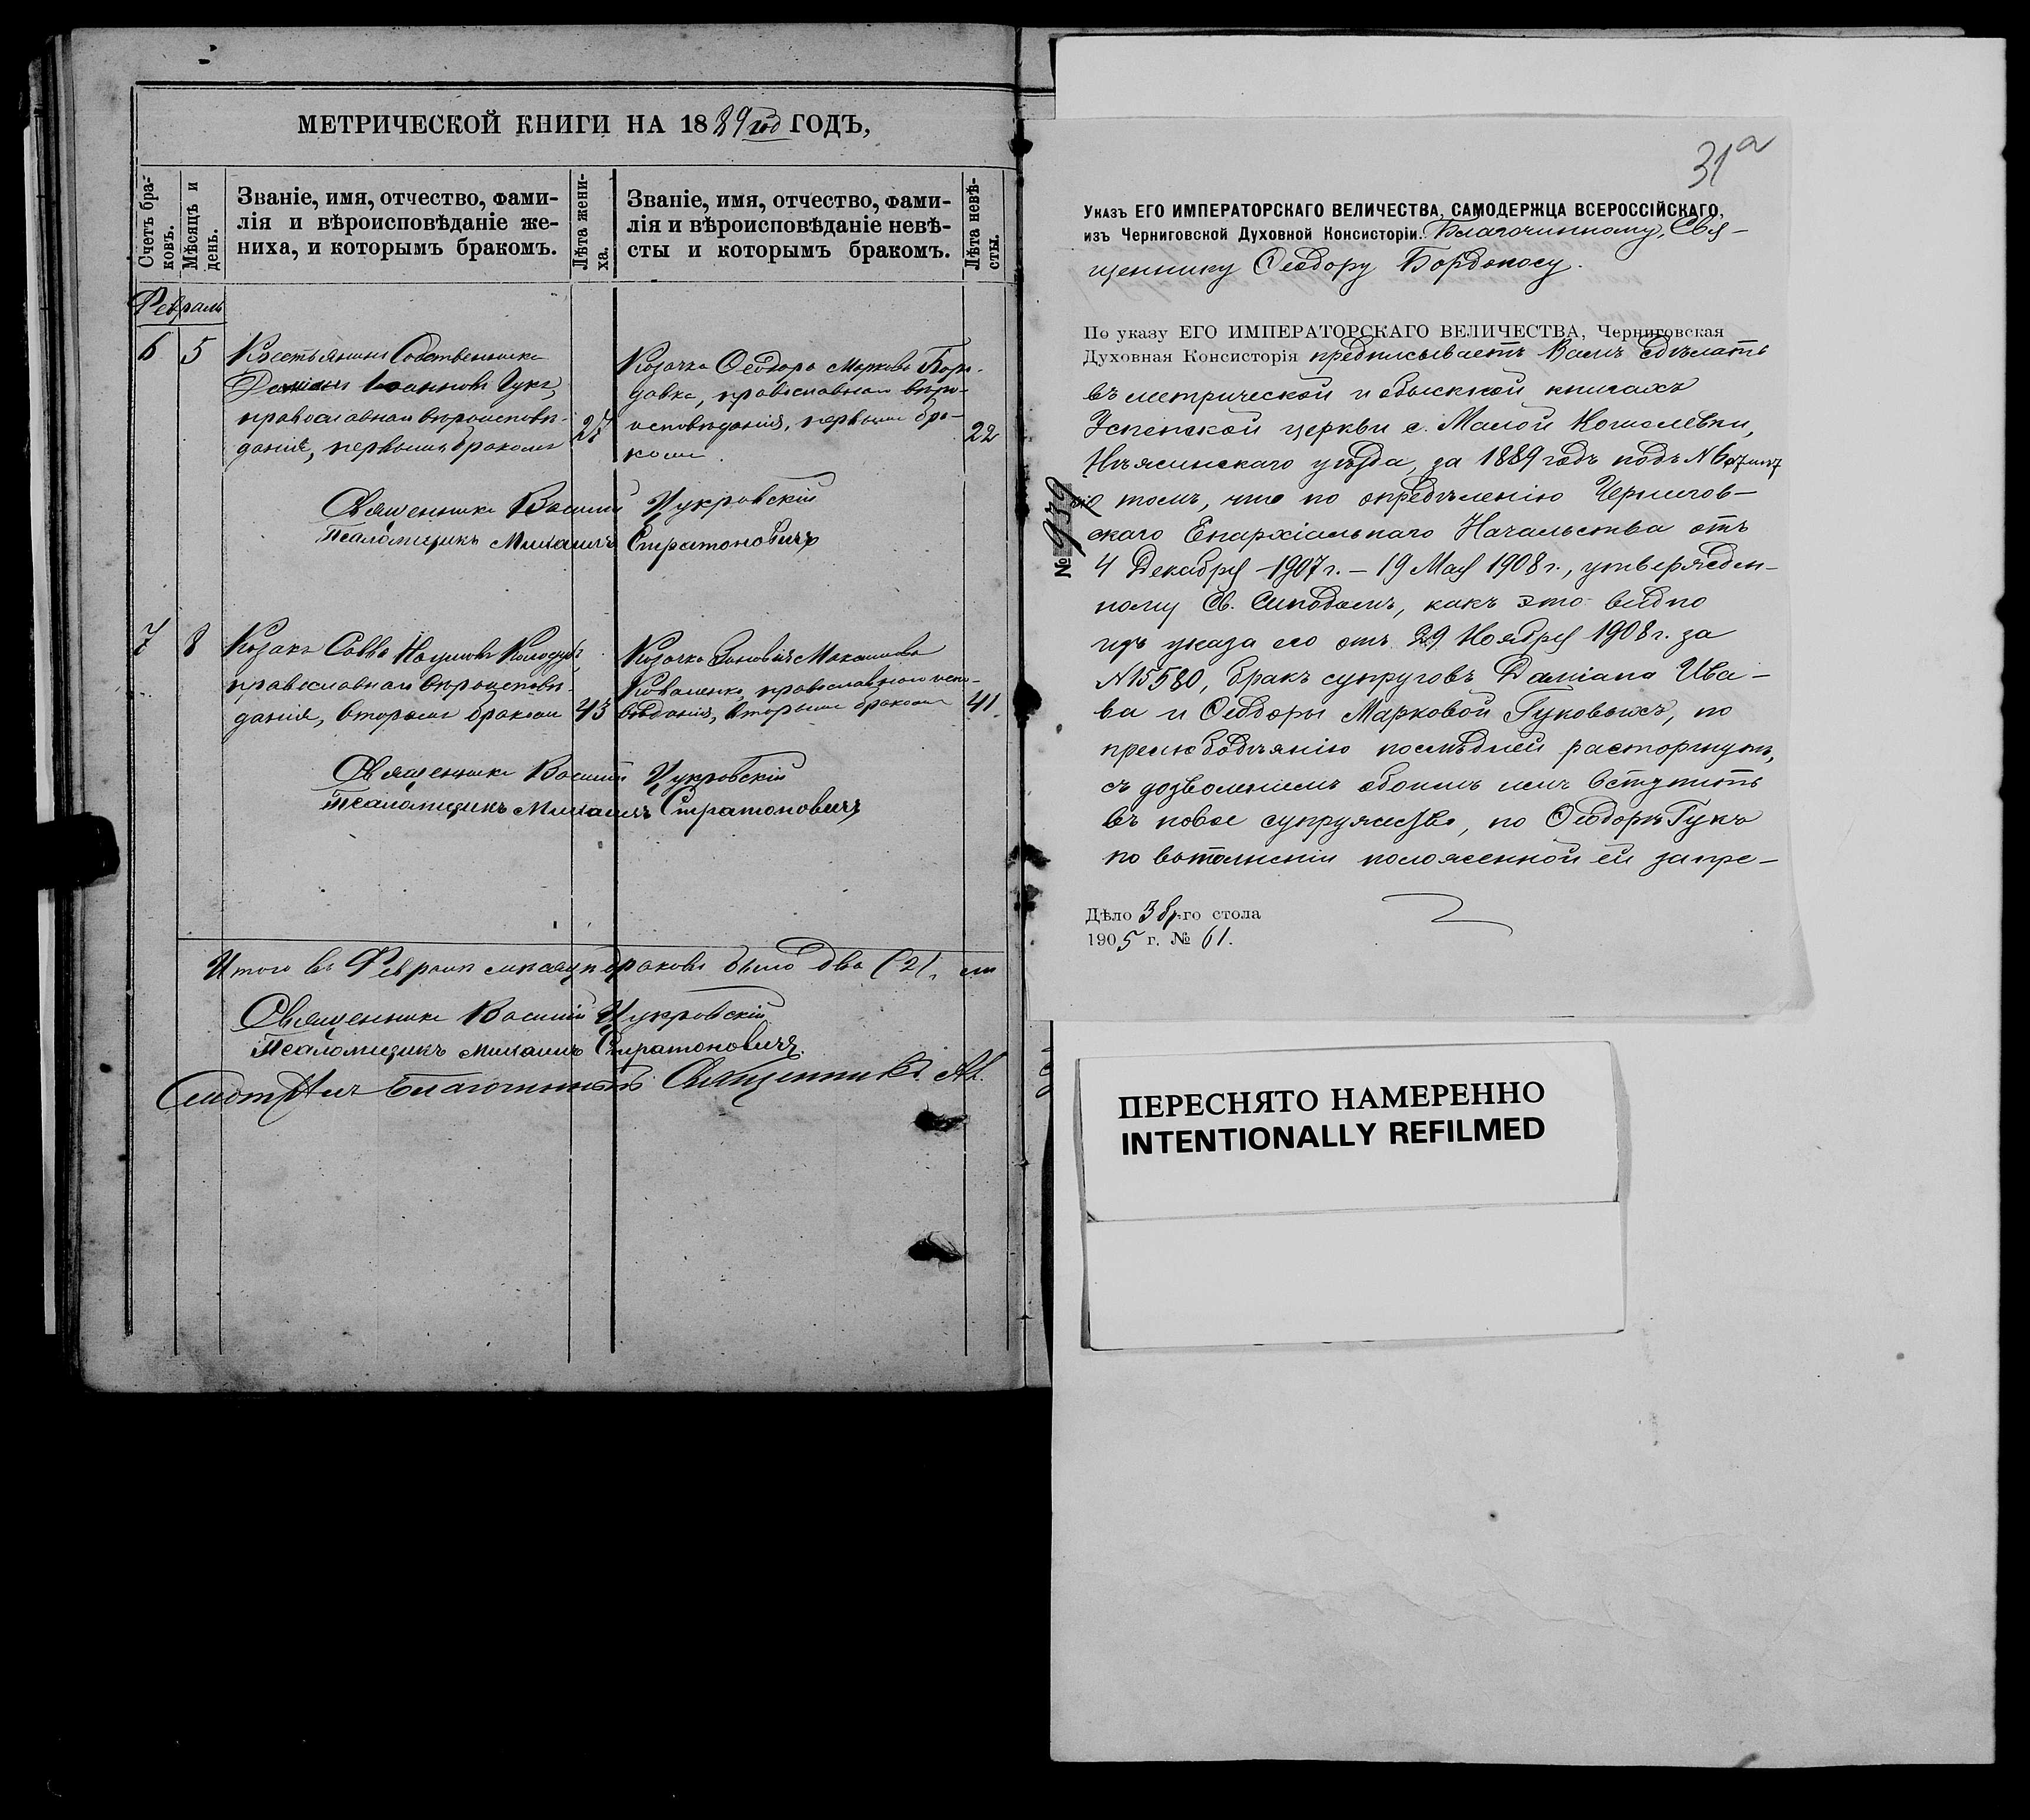 МЕТРИЧЕСКОЙ КНИГИ НА 1889 год ГОДЪ,
Счетъ бра-
ковъ.
Мѣсяцъ и
день.
Званіе, имя, отчество, фами-
лія и вѣроисповѣданіе же-
ниха, и которымъ бракомъ.
Лѣта жени-
ха.
Званіе, имя, отчество, фами-
лія и вѣроисповѣданіе невѣ-
сты и которымъ бракомъ.
Лѣта невѣ-
сты.
Февраль
6 5
Крестьянинъ Собственникъ
Даміанъ Іоанновъ Гукъ,
православнаго вѣроисповѣ-
данія, первымъ бракомъ
27
Козачка Ѳеодора Маркова
православнаго вѣро-
исповѣданія, первымъ бра-
комъ.
22
Священникъ Василій Цукровскій
Псаломщикъ Михаилъ Стратоновичъ
7 8
Козакъ Савва Наумовъ
православнаго вѣроисповѣ-
данія, вторымъ бракомъ
43
Козачка Зиновія Максимова
Коваленко, православнаго испо-
вѣданія, вторымъ бракомъ
41.
Священникъ Василій Цукровскій
Псаломщикъ Михаилъ Стратоновичъ
Итого въ Февралѣ мѣсяцѣ браковъ было два (2).
Священникъ Василій Цукровскій
Псаломщикъ Михаилъ Стратоновичъ.
Смотрѣлъ Благочинный Священникъ
31а
Указъ ЕГО ИМПЕРАТОРСКАГО ВЕЛИЧЕСТВА, САМОДЕРЖЦА ВСЕРОССІЙСКАГО,
изъ Черниговской Духовной Консисторіи. Благочинному, Свя-
щеннику Ѳеодору Бордоносу.
По указу ЕГО ИМПЕРАТОРСКАГО ВЕЛИЧЕСТВА, Черниговская
Духовная Консисторія предписываетъ Вамъ сдѣлать
въ метрической и обыскной книгахъ
Успенской церкви с. Малой Кошелевки,
Нѣжинскаго уѣзда, за 1889 годъ подъ №6
о томъ, что по опредѣленію Чернигов-
скаго Епархіальнаго Начальства отъ
4 Декабря 1907 г. – 19 Мая 1908 г., утвержден-
ному Св. Синодомъ, какъ это видно
изъ указа его отъ 29 Ноября 1908 г. за
№15580, бракъ супруговъ Даміана Ива-
ва и Ѳеодоры Марковой Гуковыхъ, по
прелюбодѣянію послѣдней расторгнутъ,
съ дозволеніемъ обоимъ имъ вступить
въ новое супружество, но Ѳеодорѣ Гукъ
по выполненіи положенной ей запре-
№ 939
Дѣло 3 бр.го стола
1905 г. № 61.
ПЕРЕСНЯТО НАМЕРЕННО
INTENTIONALLY REFILMED